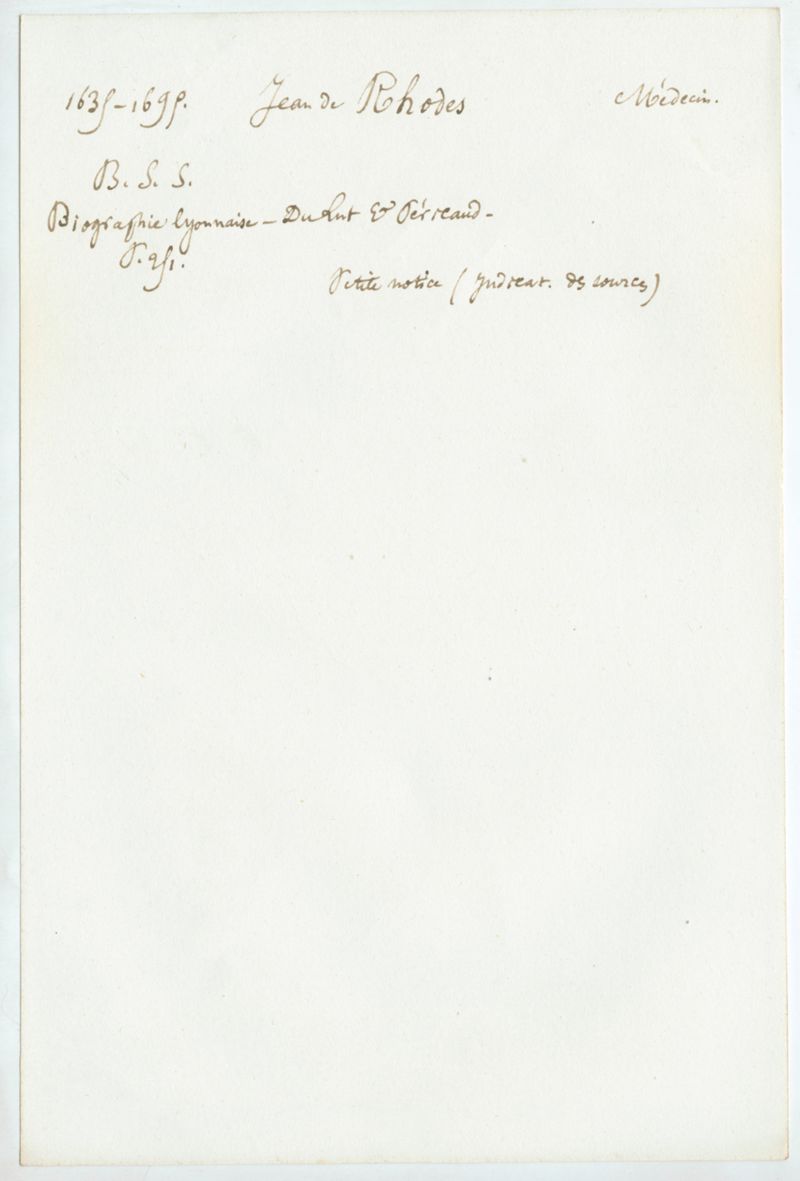 1635-1695. Jean de Rhodes Médecin.
B. S. S.
Biographie lyonnaise - Du Lut & Péricaud -
P. 251.
Petite notice ( Indicat. des sources )